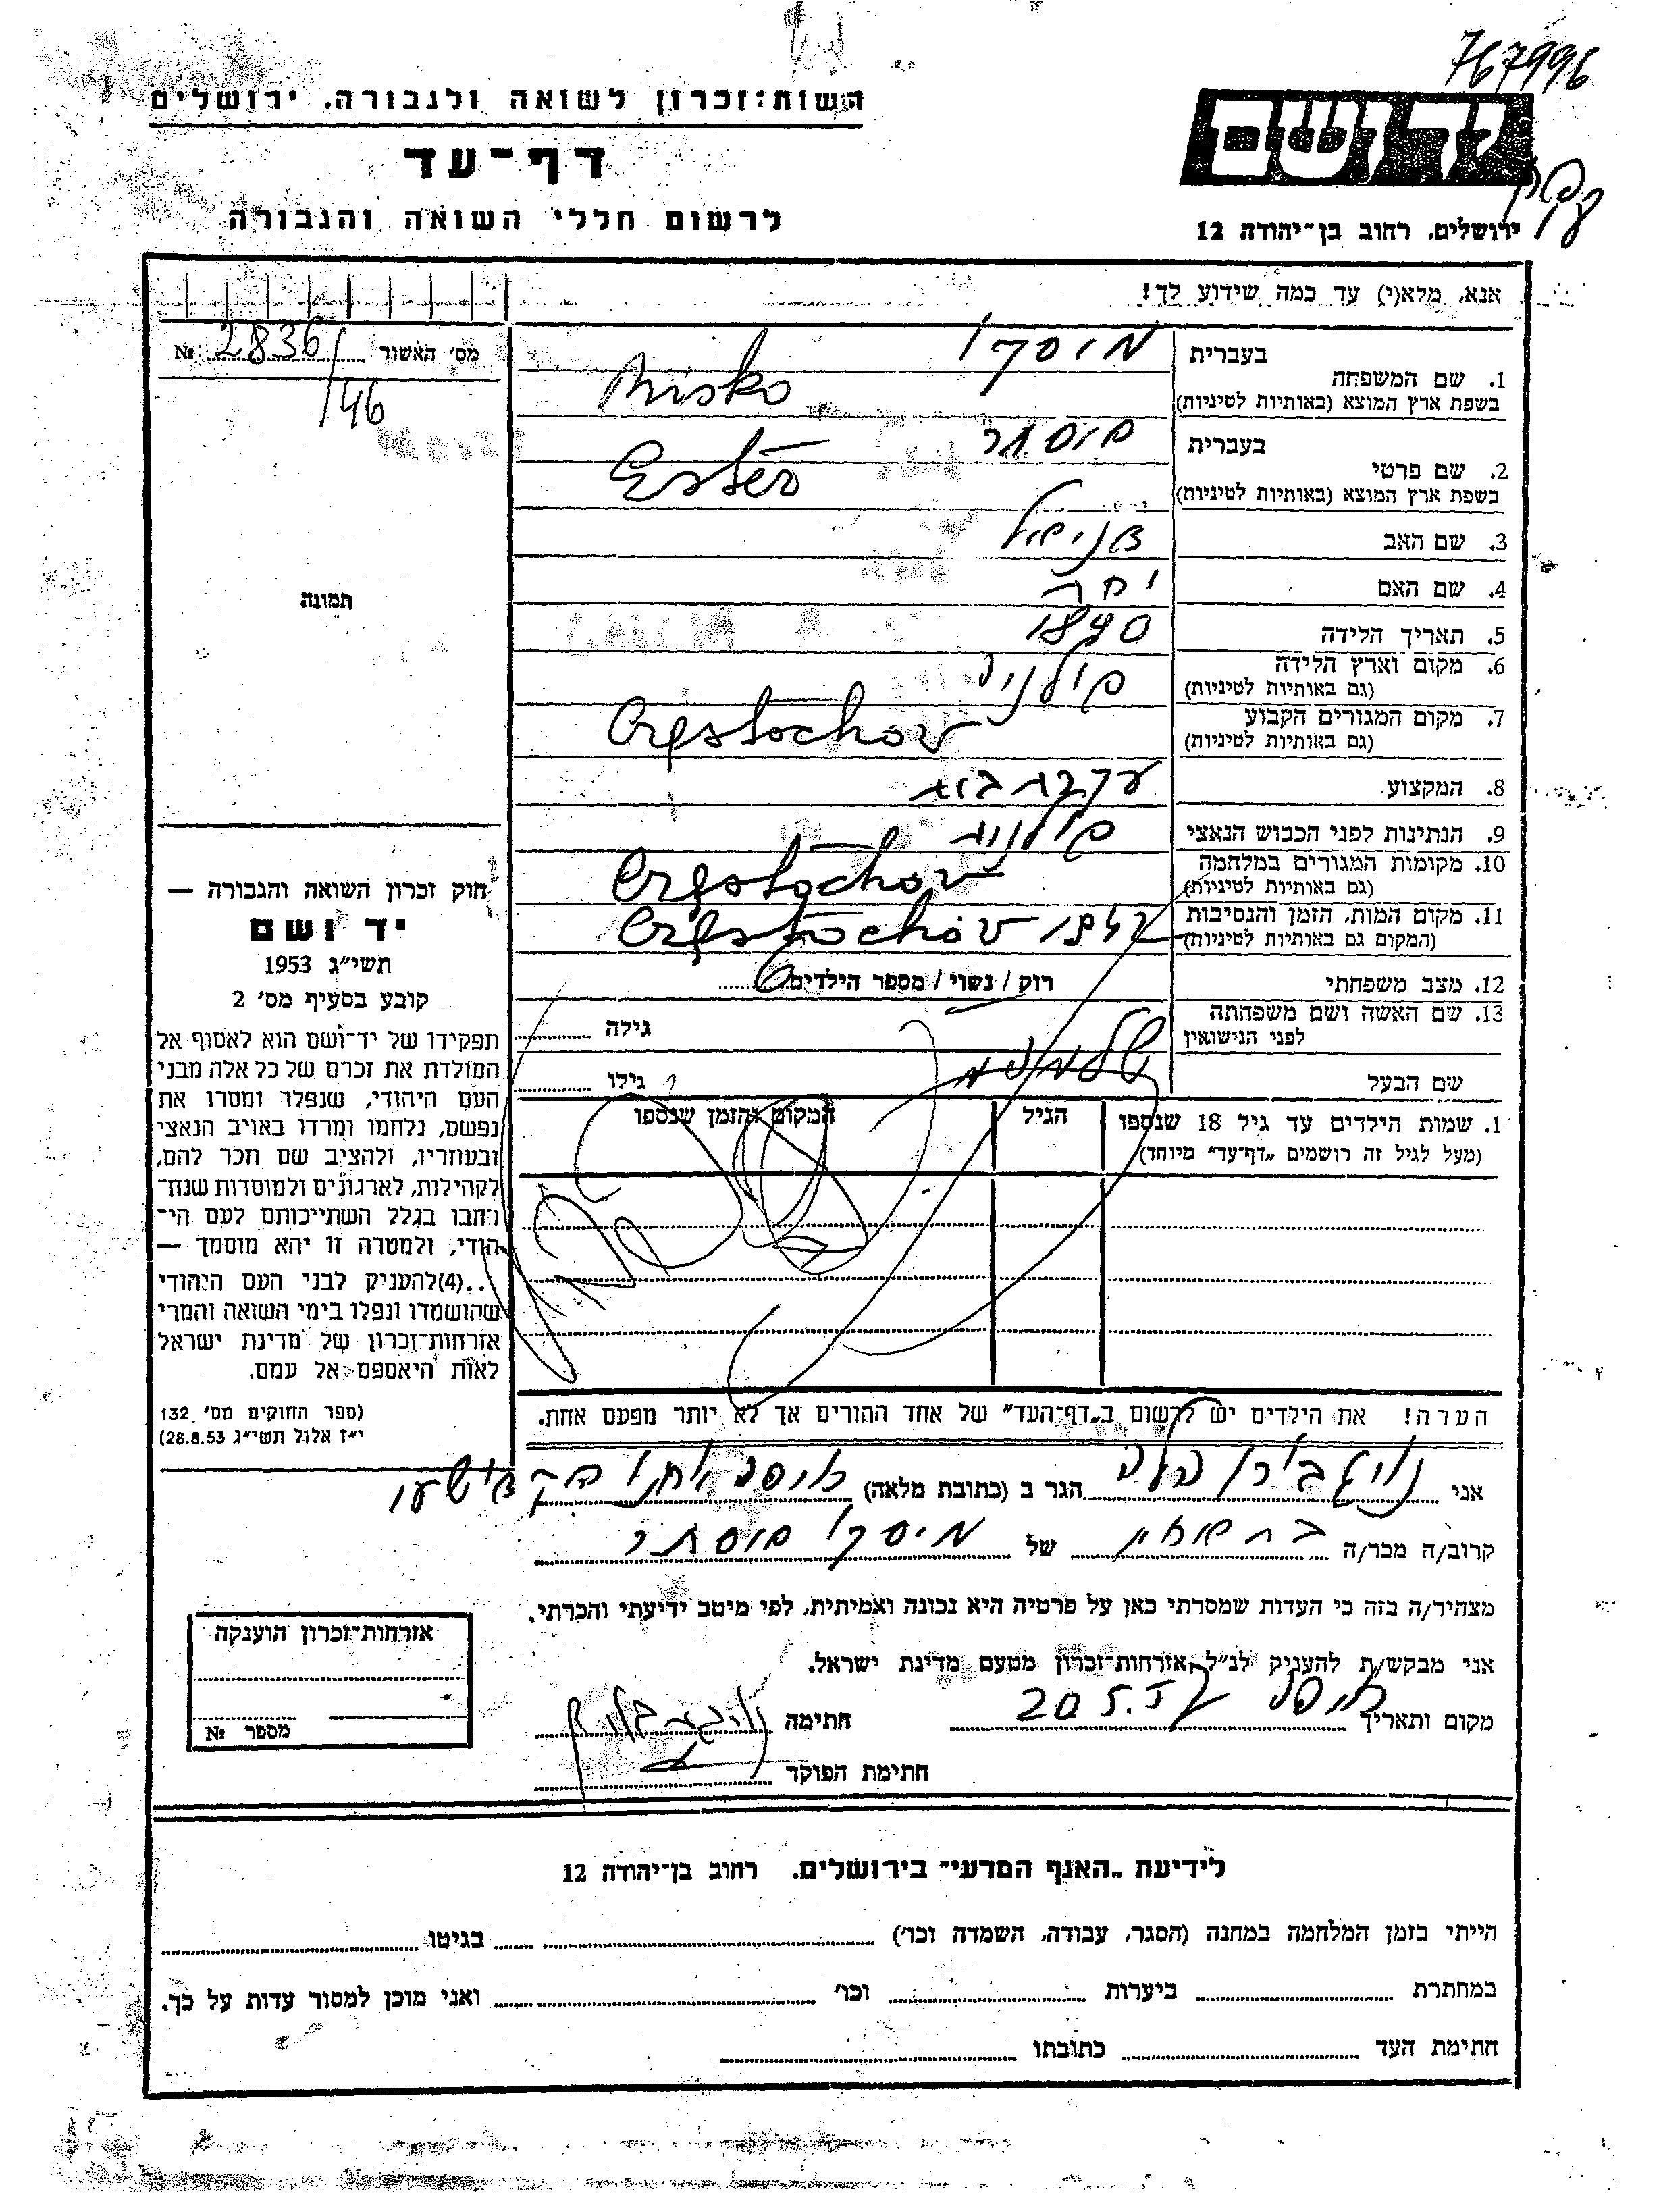 767996
רשות־זכרון לשואה ולגבורה, ירושלים
דף־עד
לרשום חללי השואה והגבורה
יד ושם
ירושלים, רחוב בן־יהודה 12
אנא, מלא(י) עד כמה שידוע לך!
מס׳ האשור 2836 №
/46
תמונה
1. שם המשפחה
בעברית מוסקו
בשפת ארץ המוצא (באותיות לטיניות) Misko
2. שם פרטי
בעברית אסתר
בשפת ארץ המוצא (באותיות לטיניות) Ester
3. שם האב דניאל
4. שם האם
5. תאריך הלידה 1890
6. מקום וארץ הלידה פולניה
(גם באותיות לטיניות)
7. מקום המגורים הקבוע Częstochov
(גם באותיות לטיניות)
8. המקצוע עקרת בית
9. הנתינות לפני הכבוש הנאצי פולנית
10. מקומות המגורים במלחמה Częstochov
(גם באותיות לטיניות)
11. מקום המות, הזמן והנסיבות Częstochov
(המקום גם באותיות לטיניות)
12. מצב משפחתי רוק / נשוי / מספר הילדים 6
13. שם האשה ושם משפחתה
לפני הנישואין
גילה
שם הבעל שלמה
גילו
1. שמות הילדים עד גיל 18 שנספו
(מעל לגיל זה רושמים „דף־עד״ מיוחד)
הגיל
המקום והזמן שנספו
הערה! את הילדים יש לרשום ב„דף־העד״ של אחד ההורים אך לא יותר מפעם אחת.
חוק זכרון השואה והגבורה —
יד ושם
תשי״ג 1953
קובע בסעיף מס׳ 2
תפקידו של יד־ושם הוא לאסוף אל
המולדת את זכרם של כל אלה מבני
העם היהודי, שנפלו ומסרו את
נפשם, נלחמו ומרדו באויב הנאצי
ובעוזריו, ולהציב שם וזכר להם,
לקהילות, לארגונים ולמוסדות שנח־
רבו בגלל השתייכותם לעם הי־
הודי, ולמטרה זו יהא מוסמך —
...(4)להעניק לבני העם היהודי
שהושמדו ונפלו בימי השואה והמרי
אזרחות־זכרון של מדינת ישראל
לאות היאספם אל עמם.
(ספר החוקים מס׳ 132,
י״ז אלול תשי״ג 28.8.53)
אני הגר ב (כתובת מלאה)
קרוב/ה מכר/ה של מיסקו אסתר
מצהיר/ה בזה כי העדות שמסרתי כאן על פרטיה היא נכונה ואמיתית, לפי מיטב ידיעתי והכרתי.
אני מבקש/ת להעניק לנ״ל אזרחות־זכרון מטעם מדינת ישראל.
מקום ותאריך חיפה 20.5.57 חתימה
חתימת הפוקד
אזרחות־זכרון הוענקה
מספר №
לידיעת „האגף המדעי״ בירושלים, רחוב בן־יהודה 12
הייתי בזמן המלחמה במחנה (הסגר, עבודה, השמדה וכו׳) בגיטו
במחתרת ביערות וכו׳ ואני מוכן למסור עדות על כך.
חתימת העד כתובתו